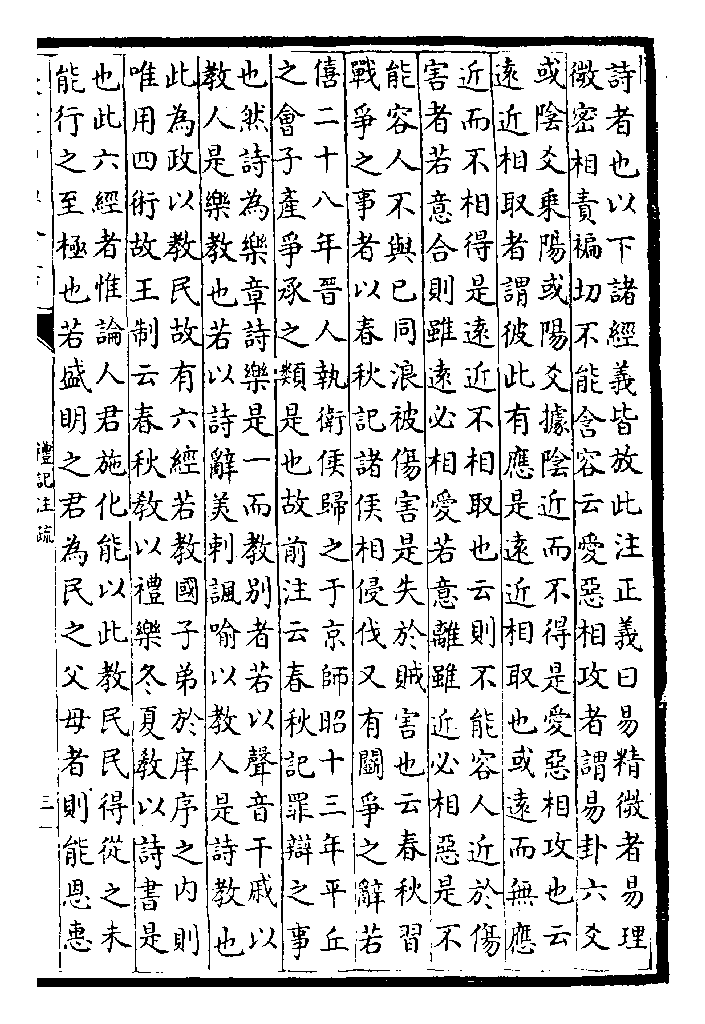 詩者也以下諸經義皆放此注正義曰易精微者易理
微密相責褊切不能含容云愛惡相攻者謂易卦六爻
或陰爻乘陽或陽爻據陰近而不得是愛惡相攻也云
遠近相取者謂彼此有應是遠近相取也或遠而無應
近而不相得是遠近不相取也云則不能容人近於傷
害者若意合則雖遠必相愛若意離雖近必相惡是不
能容人不與已同浪被傷害是失於賊害也云春秋習
戰爭之事者以春秋記諸侯相侵伐又有鬭爭之辭若
僖二十八年晉人執衛侯歸之于京師昭十三年平丘
之會子產爭承之類是也故前注云春秋記罪辯之事
也然詩為樂章詩樂是一而教別者若以聲音干戚以
教人是樂教也若以詩辭美刺諷喻以教人是詩教也
此為政以教民故有六經若教國子弟於庠序之内則
唯用四術故王制云春秋教以禮樂冬夏教以詩書是
也此六經者惟論人君施化能以此教民民得從之未
能行之至極也若盛明之君為民之父母者則能恩惠
禮記注疏